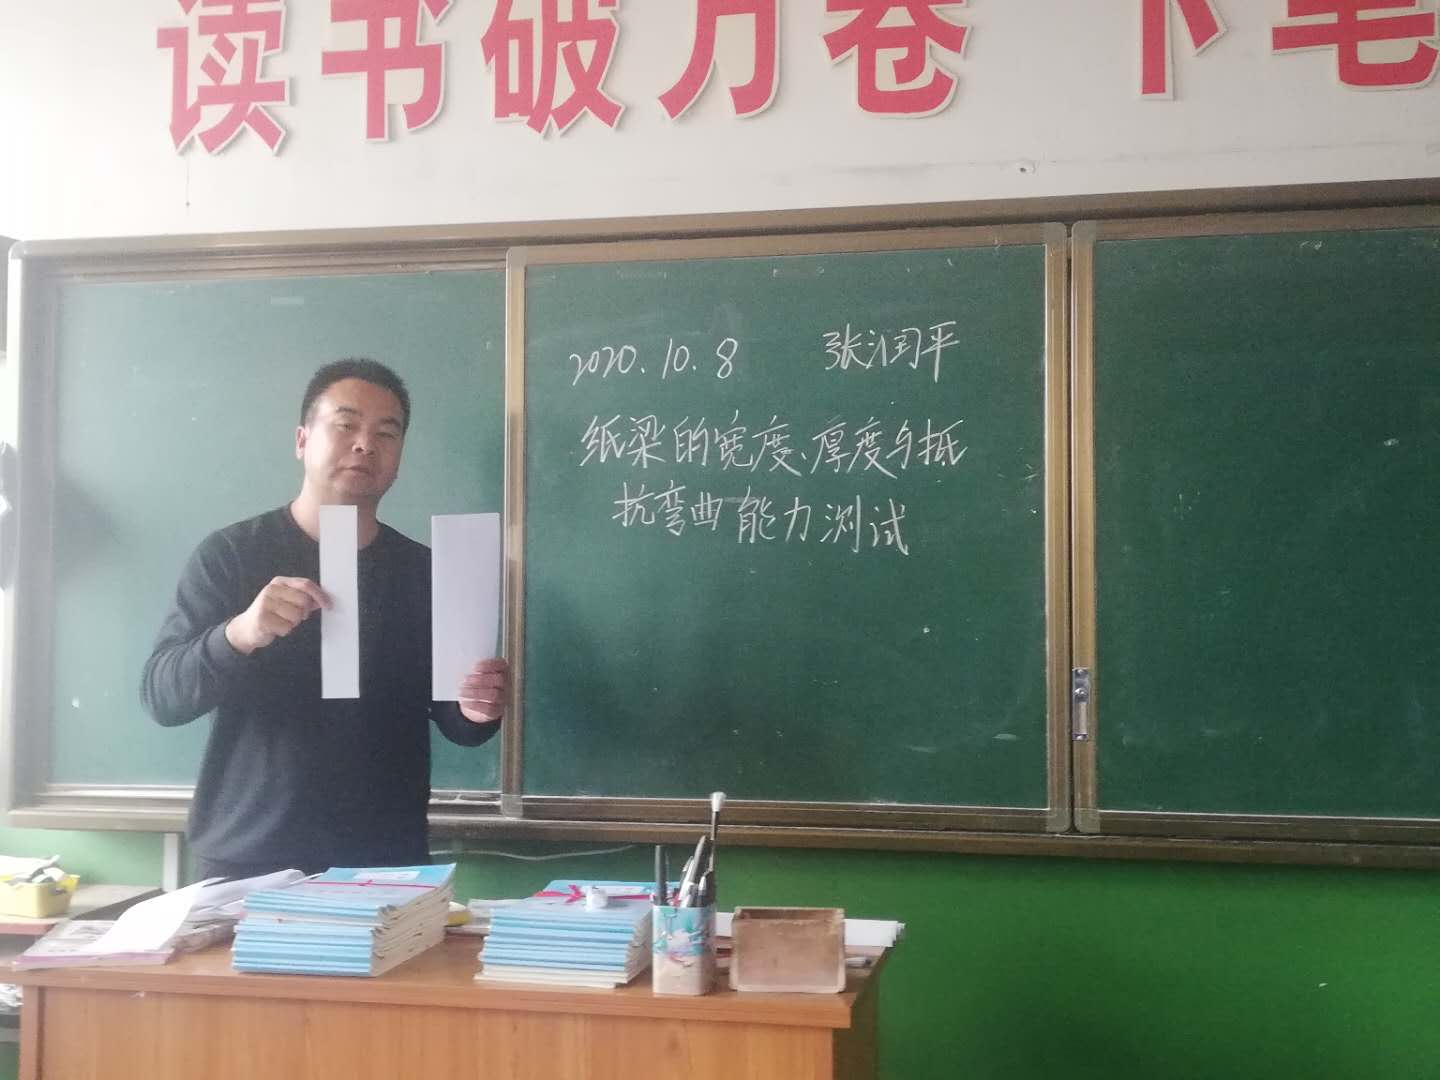 读书破万卷 下笔
2020.10.8 张润平
纸梁的宽度、厚度与抵
抗弯曲能力测试